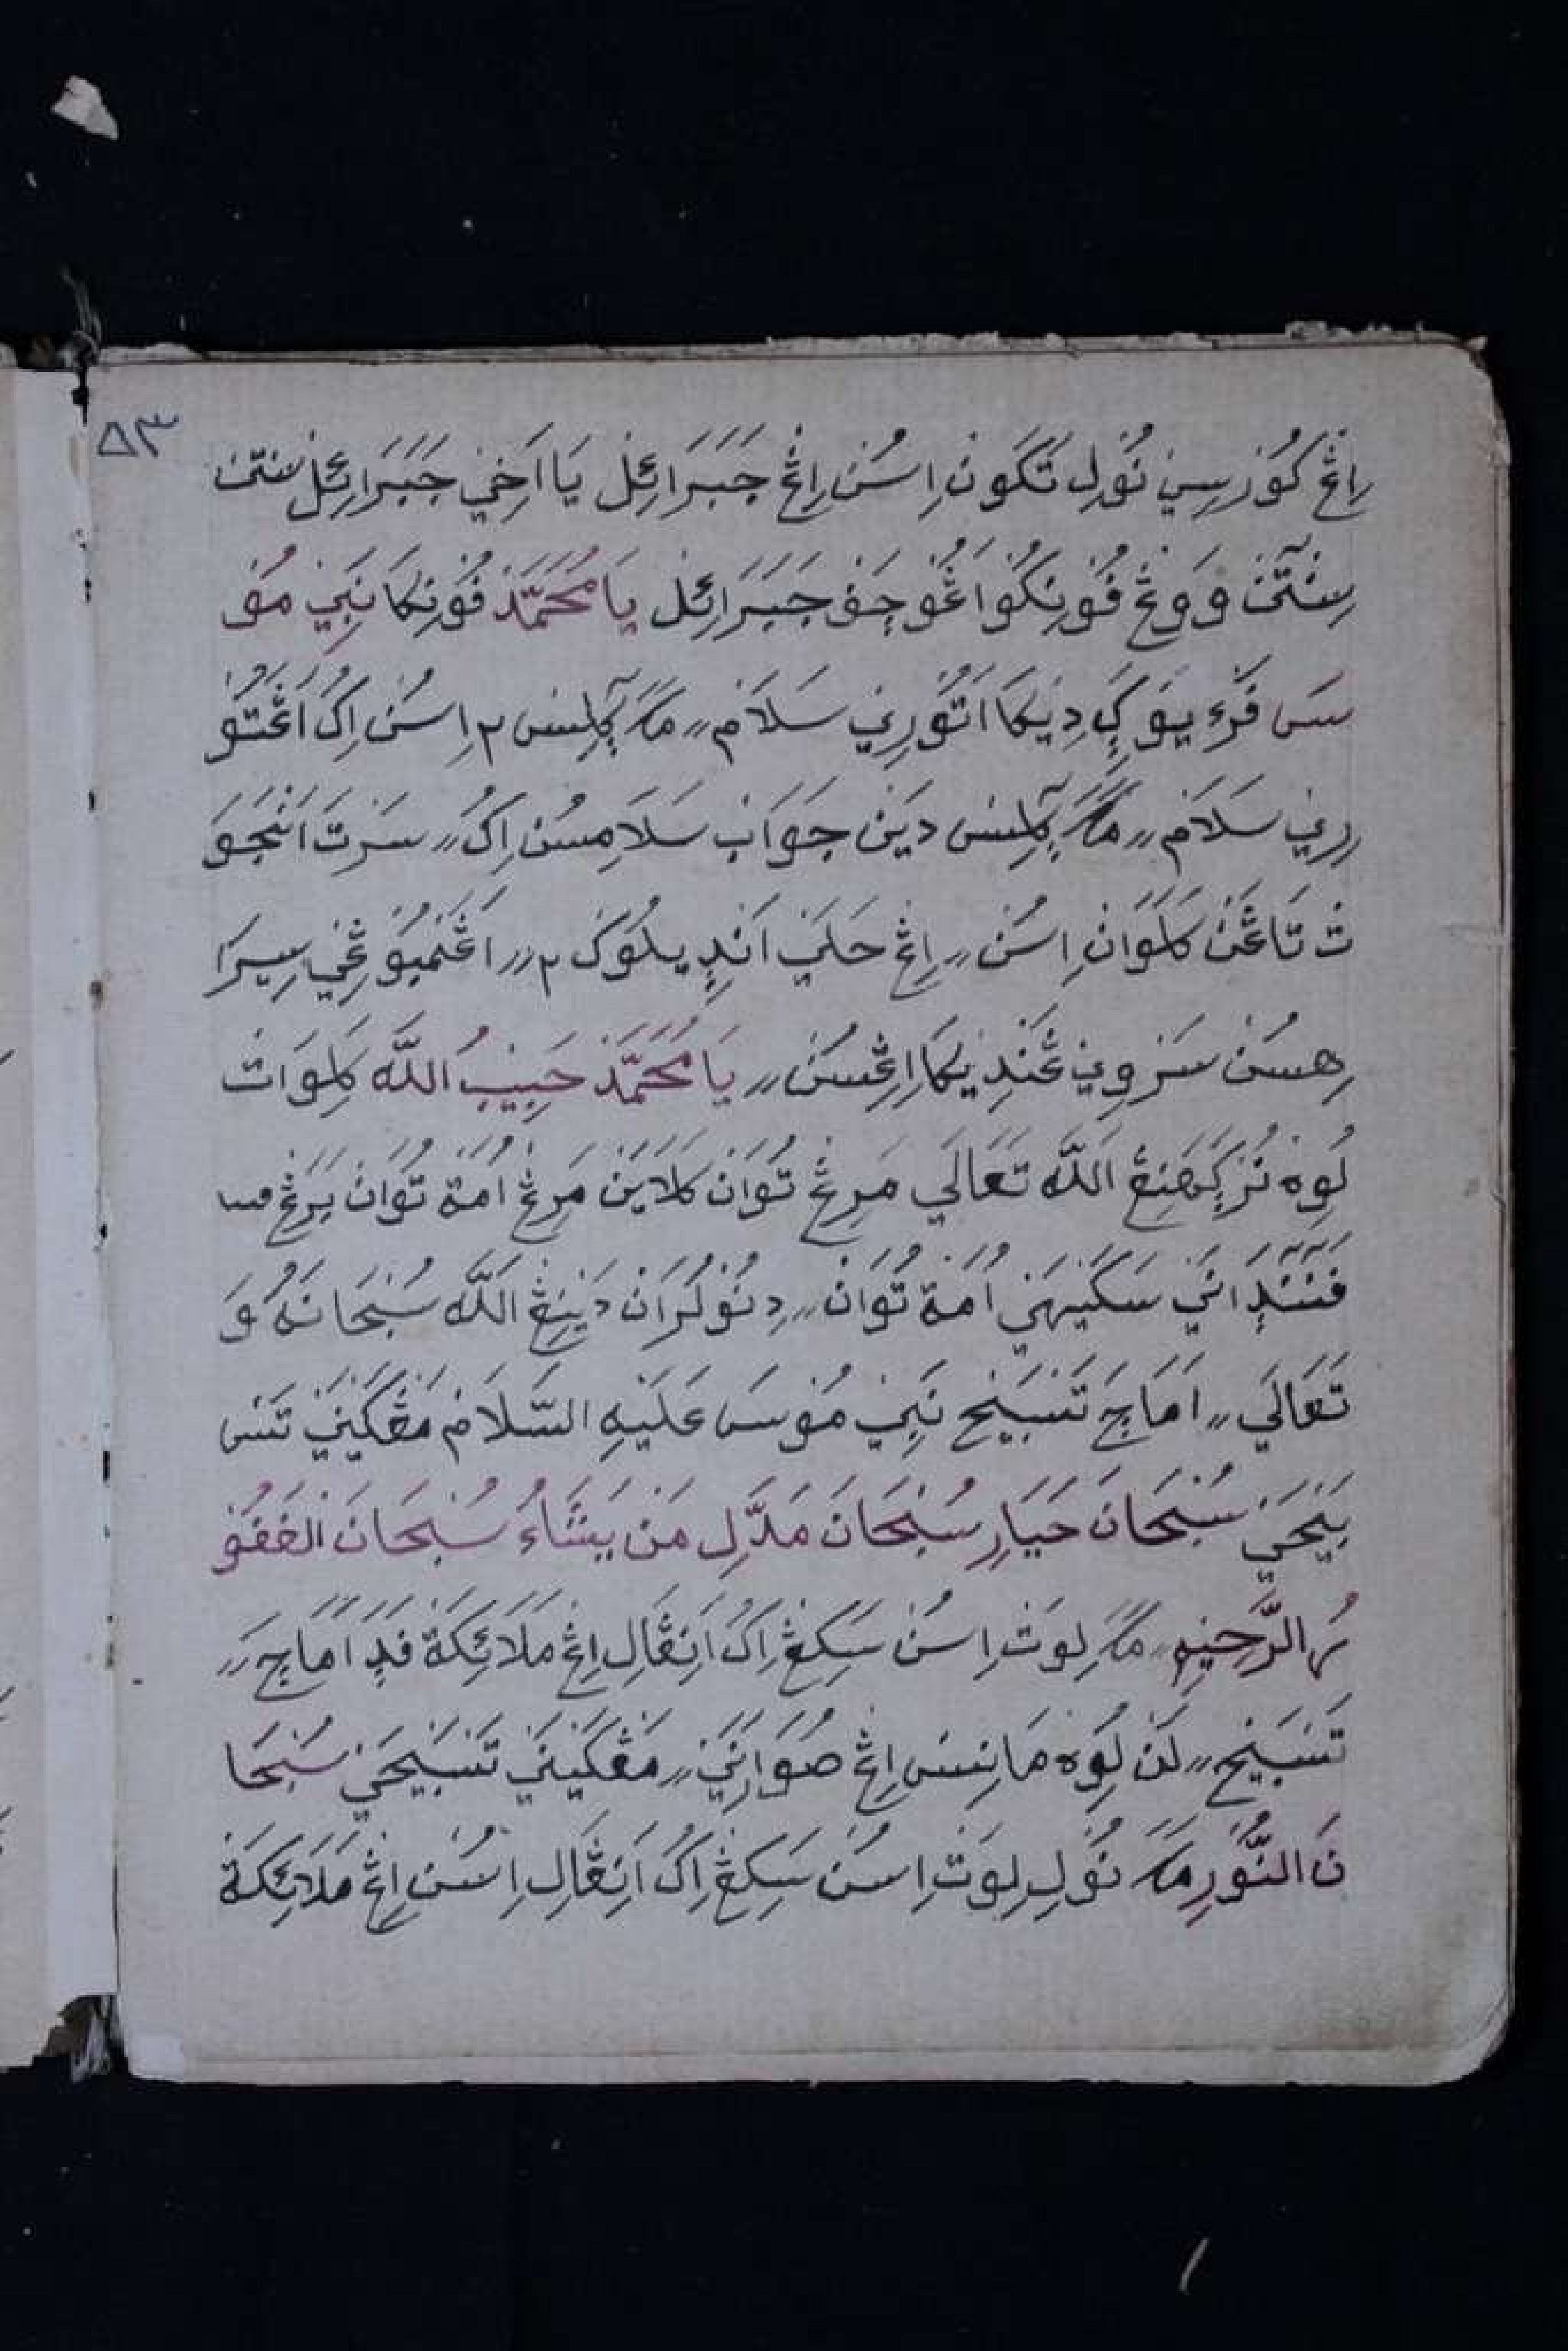 ٥٣
اِڠْ كُوْرسِيْ نُوْلِ تَكَونْ اِسُنْ اِڠْ جَبَرَائِلْ يَا اَخِيْ جَبَرَائِلْ سنتن
سِنْتَنْ ووڠْ فُوْنِكُوْ اڠُوْ جڤْ جَبَرَائِلْ يَا مُحَمَّدْ فُوْنِكَا نَبِيْ مُوْ
سَى دِيْكَا اَتُوْرِيْ سَلَامْ مَڠْكَ بَالِسْ ٢ اِسُنْ اِكُ اَڠْتُوْ
رِيْ سَلَامْ مَڠْكَ بَالِسْ دَيْنْ جَوَابْ سَلَامِسُنْ اِكُ سَرْتَ اَنْجَوَ
تْ تَاڠَنْ كَلَوَانْ اِسُنْ اِڠْ حَلَيْ اَنْدِ يلُوكْ ٢ سِيْرَا
هِسُنْ سَرْوِيْ ڠَنْدِيْكَا اِڠْسُنْ يَا مُحَمَّدْ حَبِيْبُ اللّٰهْ كَلِوَاتْ
لُوِهْ نُڮْرَهَنِڠْ اللّٰهْ تَعَالَى مَرِڠْ تُوَانْ كَلَايَنْ مَرِڠْ اُمَةْ تُوَانْ
سَكَيْهَيْ اُمَةْ تُوَانْ دِنُوْڮْرَانْ دَيْنِڠْ اللّٰهْ سُبْحَانَهُ وَ
تَعَالَى اَمَاجَ تَسْبَيْحْ نَبِيْ مُوْسَى عَلَيْهِ السَّلَامْ مَڠْكَيْنَيْ تَسْ
بَيْحَيْ سُبْحَانَ حَيَارِ سُبْحَانَ مَدَّلِ مَنْ يَشَاءُ سُبْحَانَ الْغَفُوْ
رُ الرَّحِيْمِ مَڠْكَ لِوَتْ اِسُنْ سَكِڠْ اِكُ اَنِڠَالِ اِڠْ مَلَائِكَةْ فَدَ اَمَاجَ
تَسْبَيْحْ لَنْ لُوِهْ مَانِسْ اِڠْ صُوَارَنَيْ مَڠْكَيْنَيْ تَسْبَيْحَيْ سُبْحَا
نَ النُّوْرِ مَڠْكَ نُوْلِ لِوَتْ اِسُنْ سَكِڠْ اِكُ اَنِڠَالِ اِسُنْ اِڠْ مَلَائِكَةْ